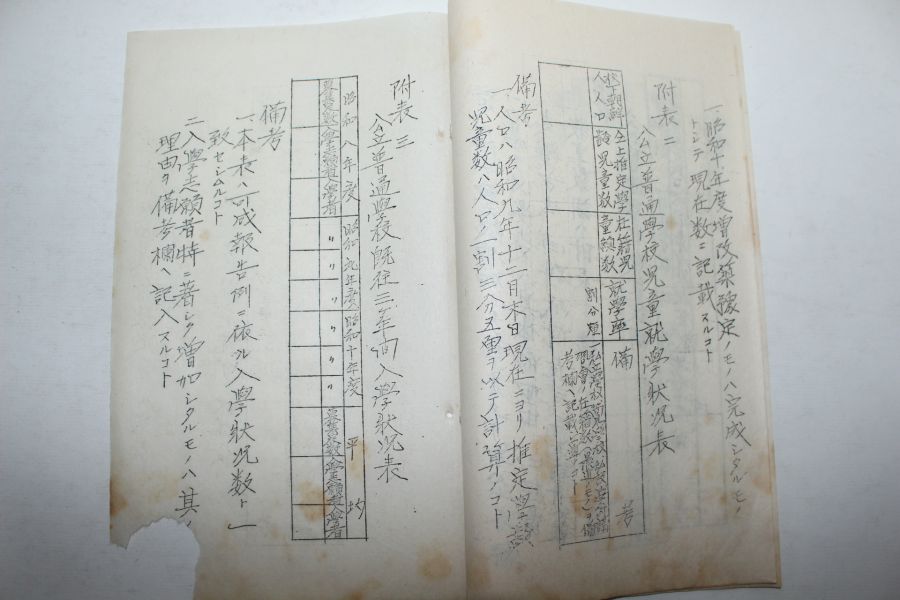 一、昭和十年度増改築豫定ノモノハ完成シタルモノ
トシテ現在数ニ記載スルコト
附表二
公立普通學校児童就學状況表
校下朝鮮人人口
仝上推定學齢児童数
在籍児童總数
就學率
割分厘
備考
考欄ヘ記載ノコト
備考
一、人口ハ昭和九年十二月末日現在ニヨリ推定學齢
児童数ハ人口ノ一割三分五厘ヲ以テ計算ノコト
附表三
公立普通學校既往三ケ年間入學状況表
昭和八年度
昭和九年度
昭和十年度
平均
募集定数
入學志願者数
入學者
〃
〃
〃
〃
〃
〃
募集定数
入學志願者数
入學者
備考
一、本表ハ可成報告例ニ依ル入學状況数ト一
致セシムルコト
二、入學志願者特ニ著シク増加シタルモノハ其ノ
理由ヲ備考欄ヘ記入スルコト